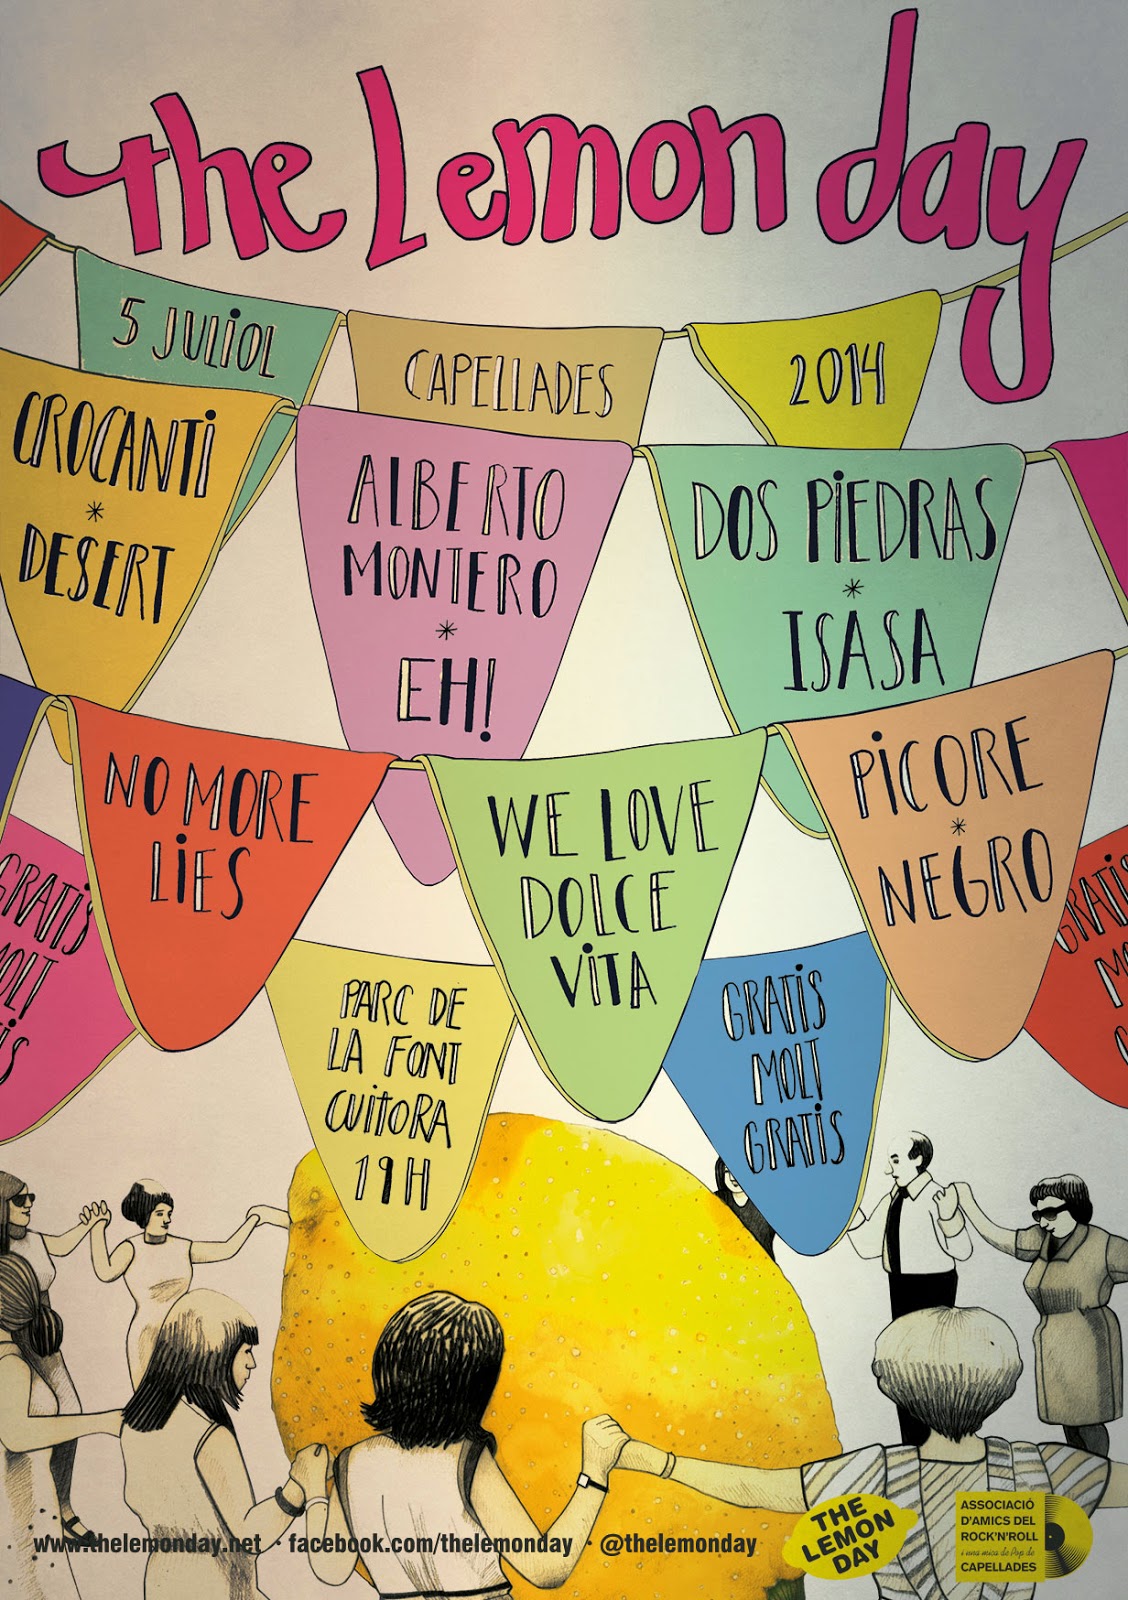 the Lemon day
5 JULIOL
CAPELLADES
2014
CROCANTI
*
DESERT
ALBERTO
MONTERO
*
EH!
DOS PIEDRAS
*
ISASA
NO MORE
LIES
WE LOVE
DOLCE
VITA
PICORE
*
NEGRO
GRATIS
MOLT
PARC DE
LA FONT
CUITORA
19H
GRATIS
MOLT
GRATIS
GRATIS
www.thelemonday.net · facebook.com/thelemonday · @thelemonday
THE
LEMON
DAY
ASSOCIACIÓ
D'AMICS DEL
ROCK'N'ROLL
i una mica de Pop de
CAPELLADES